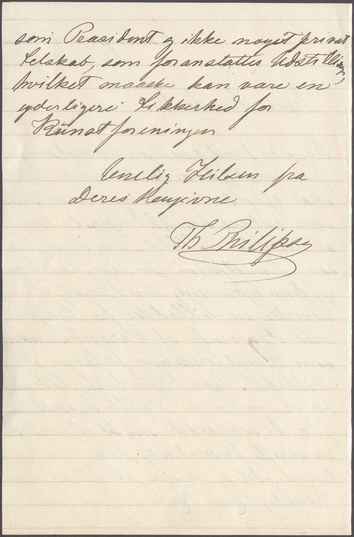 som Præsident og ikke noget privat
Selskab, som foranstalter Udstilling,
hvilket maaske kan være en
yderligere Sikkerhed for
Kunstforeningen
Venlig Hilsen fra
Deres Hengivne
Th Philipsen